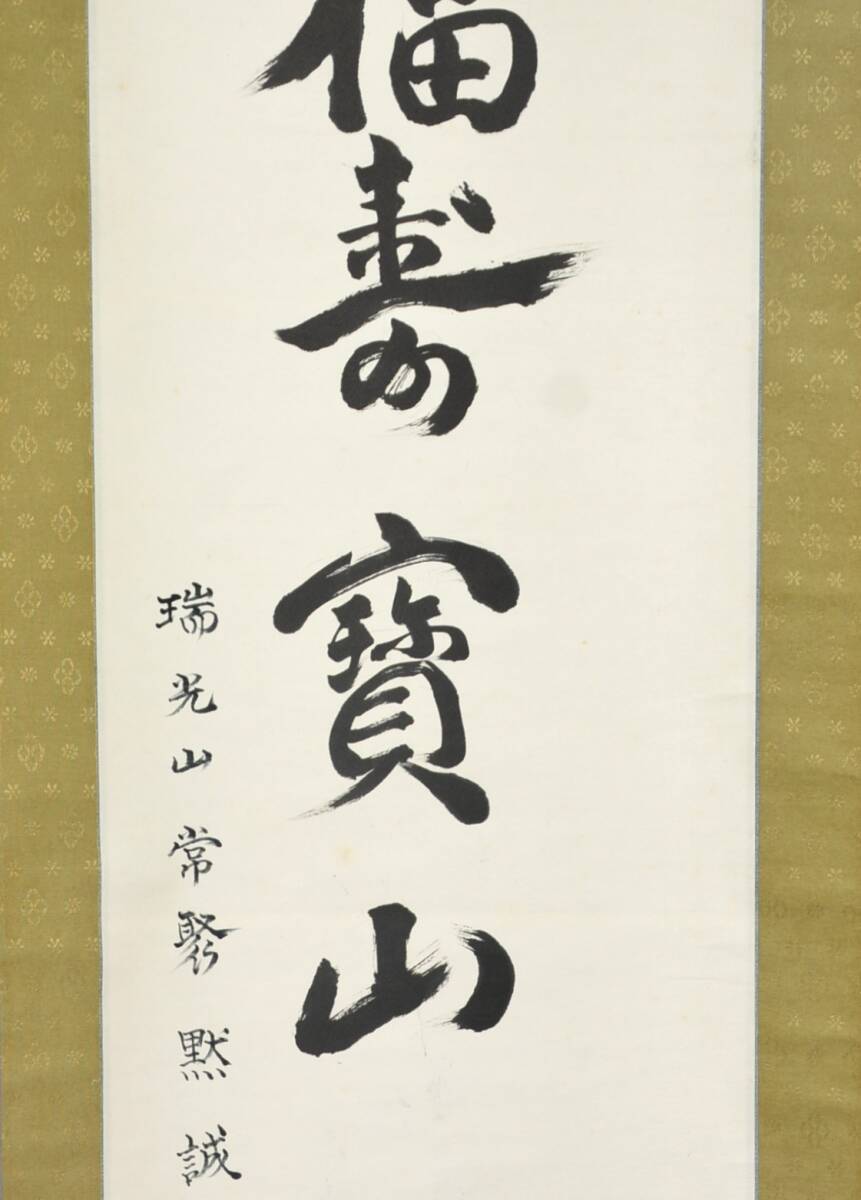 福壽寶山
瑞光山常聚默誠